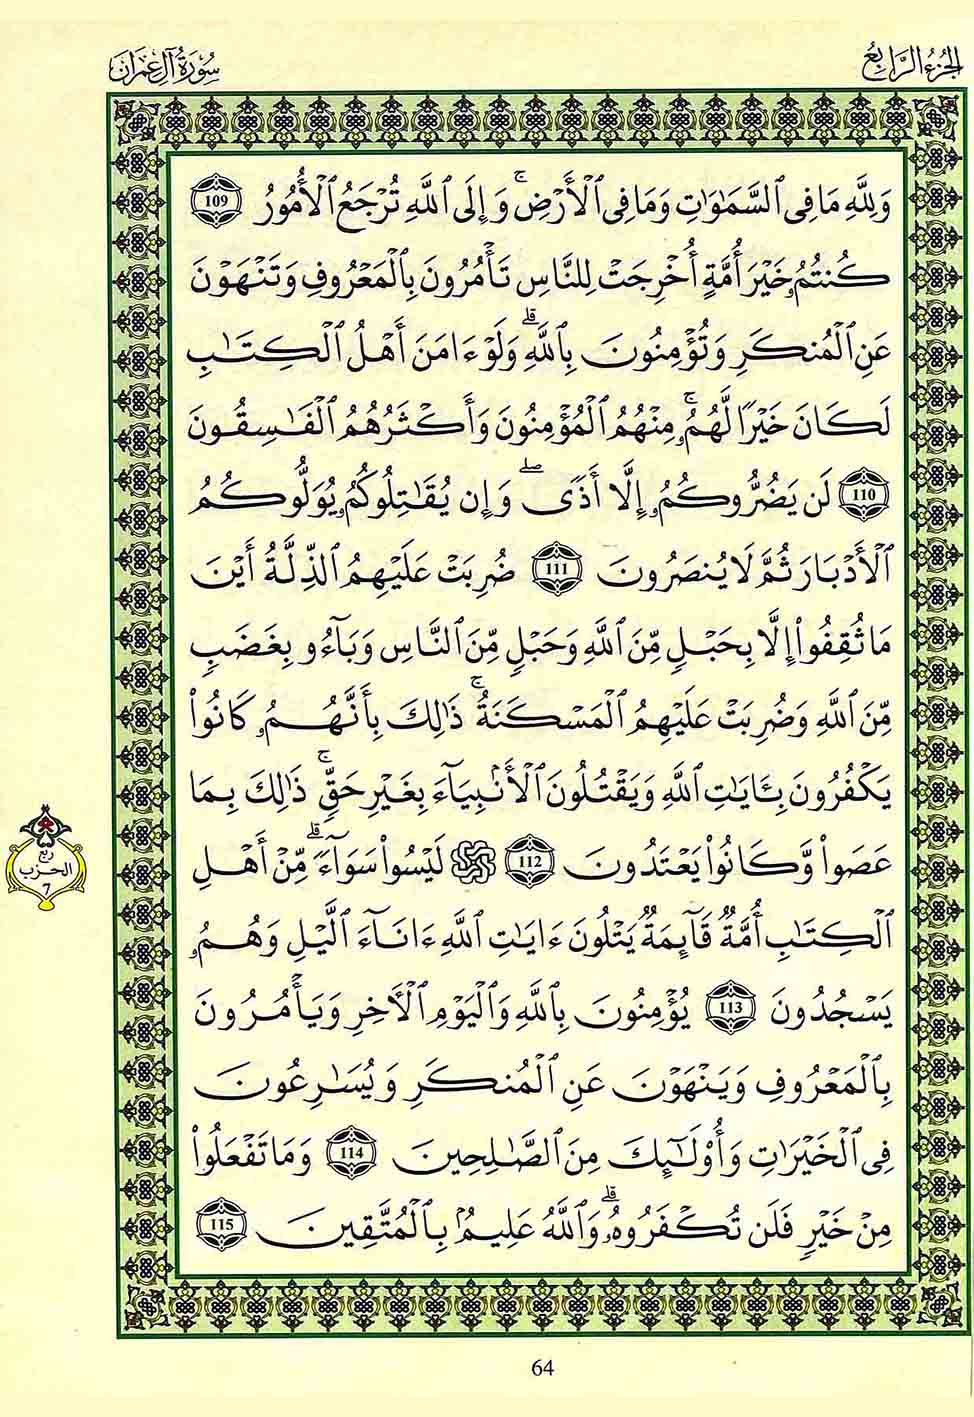 الجزء الرابع
سورة آل عمران
وَلِلَّهِ مَا فِي ٱلسَّمَٰوَٰتِ وَمَا فِي ٱلْأَرْضِۚ وَإِلَى ٱللَّهِ تُرْجَعُ ٱلْأُمُورُ 109
كُنتُمُۥ خَيْرَ أُمَّةٍ أُخْرِجَتْ لِلنَّاسِ تَأْمُرُونَ بِٱلْمَعْرُوفِ وَتَنْهَوْنَ
عَنِ ٱلْمُنكَرِ وَتُؤْمِنُونَ بِٱللَّهِۗ وَلَوْ ءَامَنَ أَهْلُ ٱلْكِتَٰبِ
لَكَانَ خَيْرًا لَّهُمُۥۚ مِنْهُمُ ٱلْمُؤْمِنُونَ وَأَكْثَرُهُمُ ٱلْفَٰسِقُونَ
110 لَن يَضُرُّوكُمُۥ إِلَّا أَذًىۖ وَإِن يُقَٰتِلُوكُمُۥ يُوَلُّوكُمُ
ٱلْأَدْبَارَ ثُمَّ لَا يُنصَرُونَ 111 ضُرِبَتْ عَلَيْهِمُ ٱلذِّلَّةُ أَيْنَ
مَا ثُقِفُوا۟ إِلَّا بِحَبْلٍ مِّنَ ٱللَّهِ وَحَبْلٍ مِّنَ ٱلنَّاسِ وَبَآءُو بِغَضَبٍ
مِّنَ ٱللَّهِ وَضُرِبَتْ عَلَيْهِمُ ٱلْمَسْكَنَةُۚ ذَٰلِكَ بِأَنَّهُمُۥ كَانُوا۟
يَكْفُرُونَ بِـَٔايَٰتِ ٱللَّهِ وَيَقْتُلُونَ ٱلْأَنۢبِيَآءَ بِغَيْرِ حَقٍّۚ ذَٰلِكَ بِمَا
عَصَوا۟ وَّكَانُوا۟ يَعْتَدُونَ 112 ۞ لَيْسُوا۟ سَوَآءًۗ مِّنْ أَهْلِ
ربع
الحزب
7
ٱلْكِتَٰبِ أُمَّةٌ قَآئِمَةٌ يَتْلُونَ ءَايَٰتِ ٱللَّهِ ءَانَآءَ ٱلَّيْلِ وَهُمُۥ
يَسْجُدُونَ 113 يُؤْمِنُونَ بِٱللَّهِ وَٱلْيَوْمِ ٱلْأٓخِرِ وَيَأْمُرُونَ
بِٱلْمَعْرُوفِ وَيَنْهَوْنَ عَنِ ٱلْمُنكَرِ وَيُسَٰرِعُونَ
فِي ٱلْخَيْرَٰتِ وَأُو۟لَٰٓئِكَ مِنَ ٱلصَّٰلِحِينَ 114 وَمَا تَفْعَلُوا۟
مِنْ خَيْرٍ فَلَن تُكْفَرُوهُۥۗ وَٱللَّهُ عَلِيمٌۢ بِٱلْمُتَّقِينَ 115
64